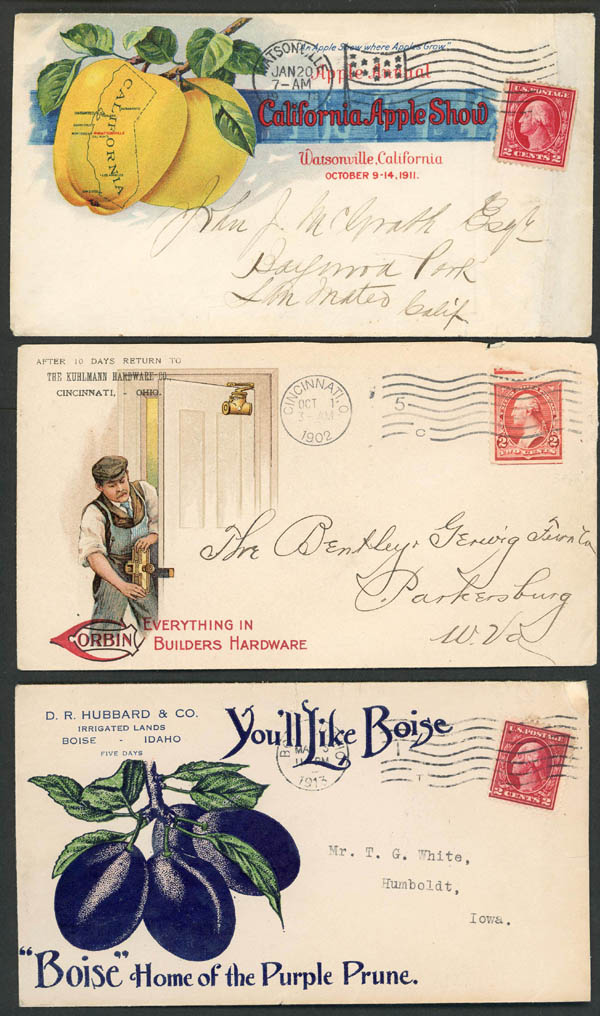 "An Apple Show where Apples Grow."
Apple Annual
California Apple Show
Watsonville, California
OCTOBER 9-14, 1911.
CALIFORNIA
WATSONVILLE
JAN 20
7-AM
U.S. POSTAGE
2 CENTS 2
John J. McGrath Esq.
Baywood Park
San Mateo Calif
AFTER 10 DAYS RETURN TO
THE KUHLMANN HARDWARE CO.,
CINCINNATI, - OHIO.
CINCINNATI, O.
OCT 1
3-AM
1902
5
C
2 2
TWO CENTS
The Bentley & Gerwig Furn Co
Parkersburg
W. Va
CORBIN
EVERYTHING IN
BUILDERS HARDWARE
D. R. HUBBARD & CO.
IRRIGATED LANDS
BOISE - IDAHO
FIVE DAYS
You'll Like Boise
1913
T
U.S. POSTAGE
2 CENTS 2
Mr. T. G. White,
Humboldt,
Iowa.
"Boise" Home of the Purple Prune.